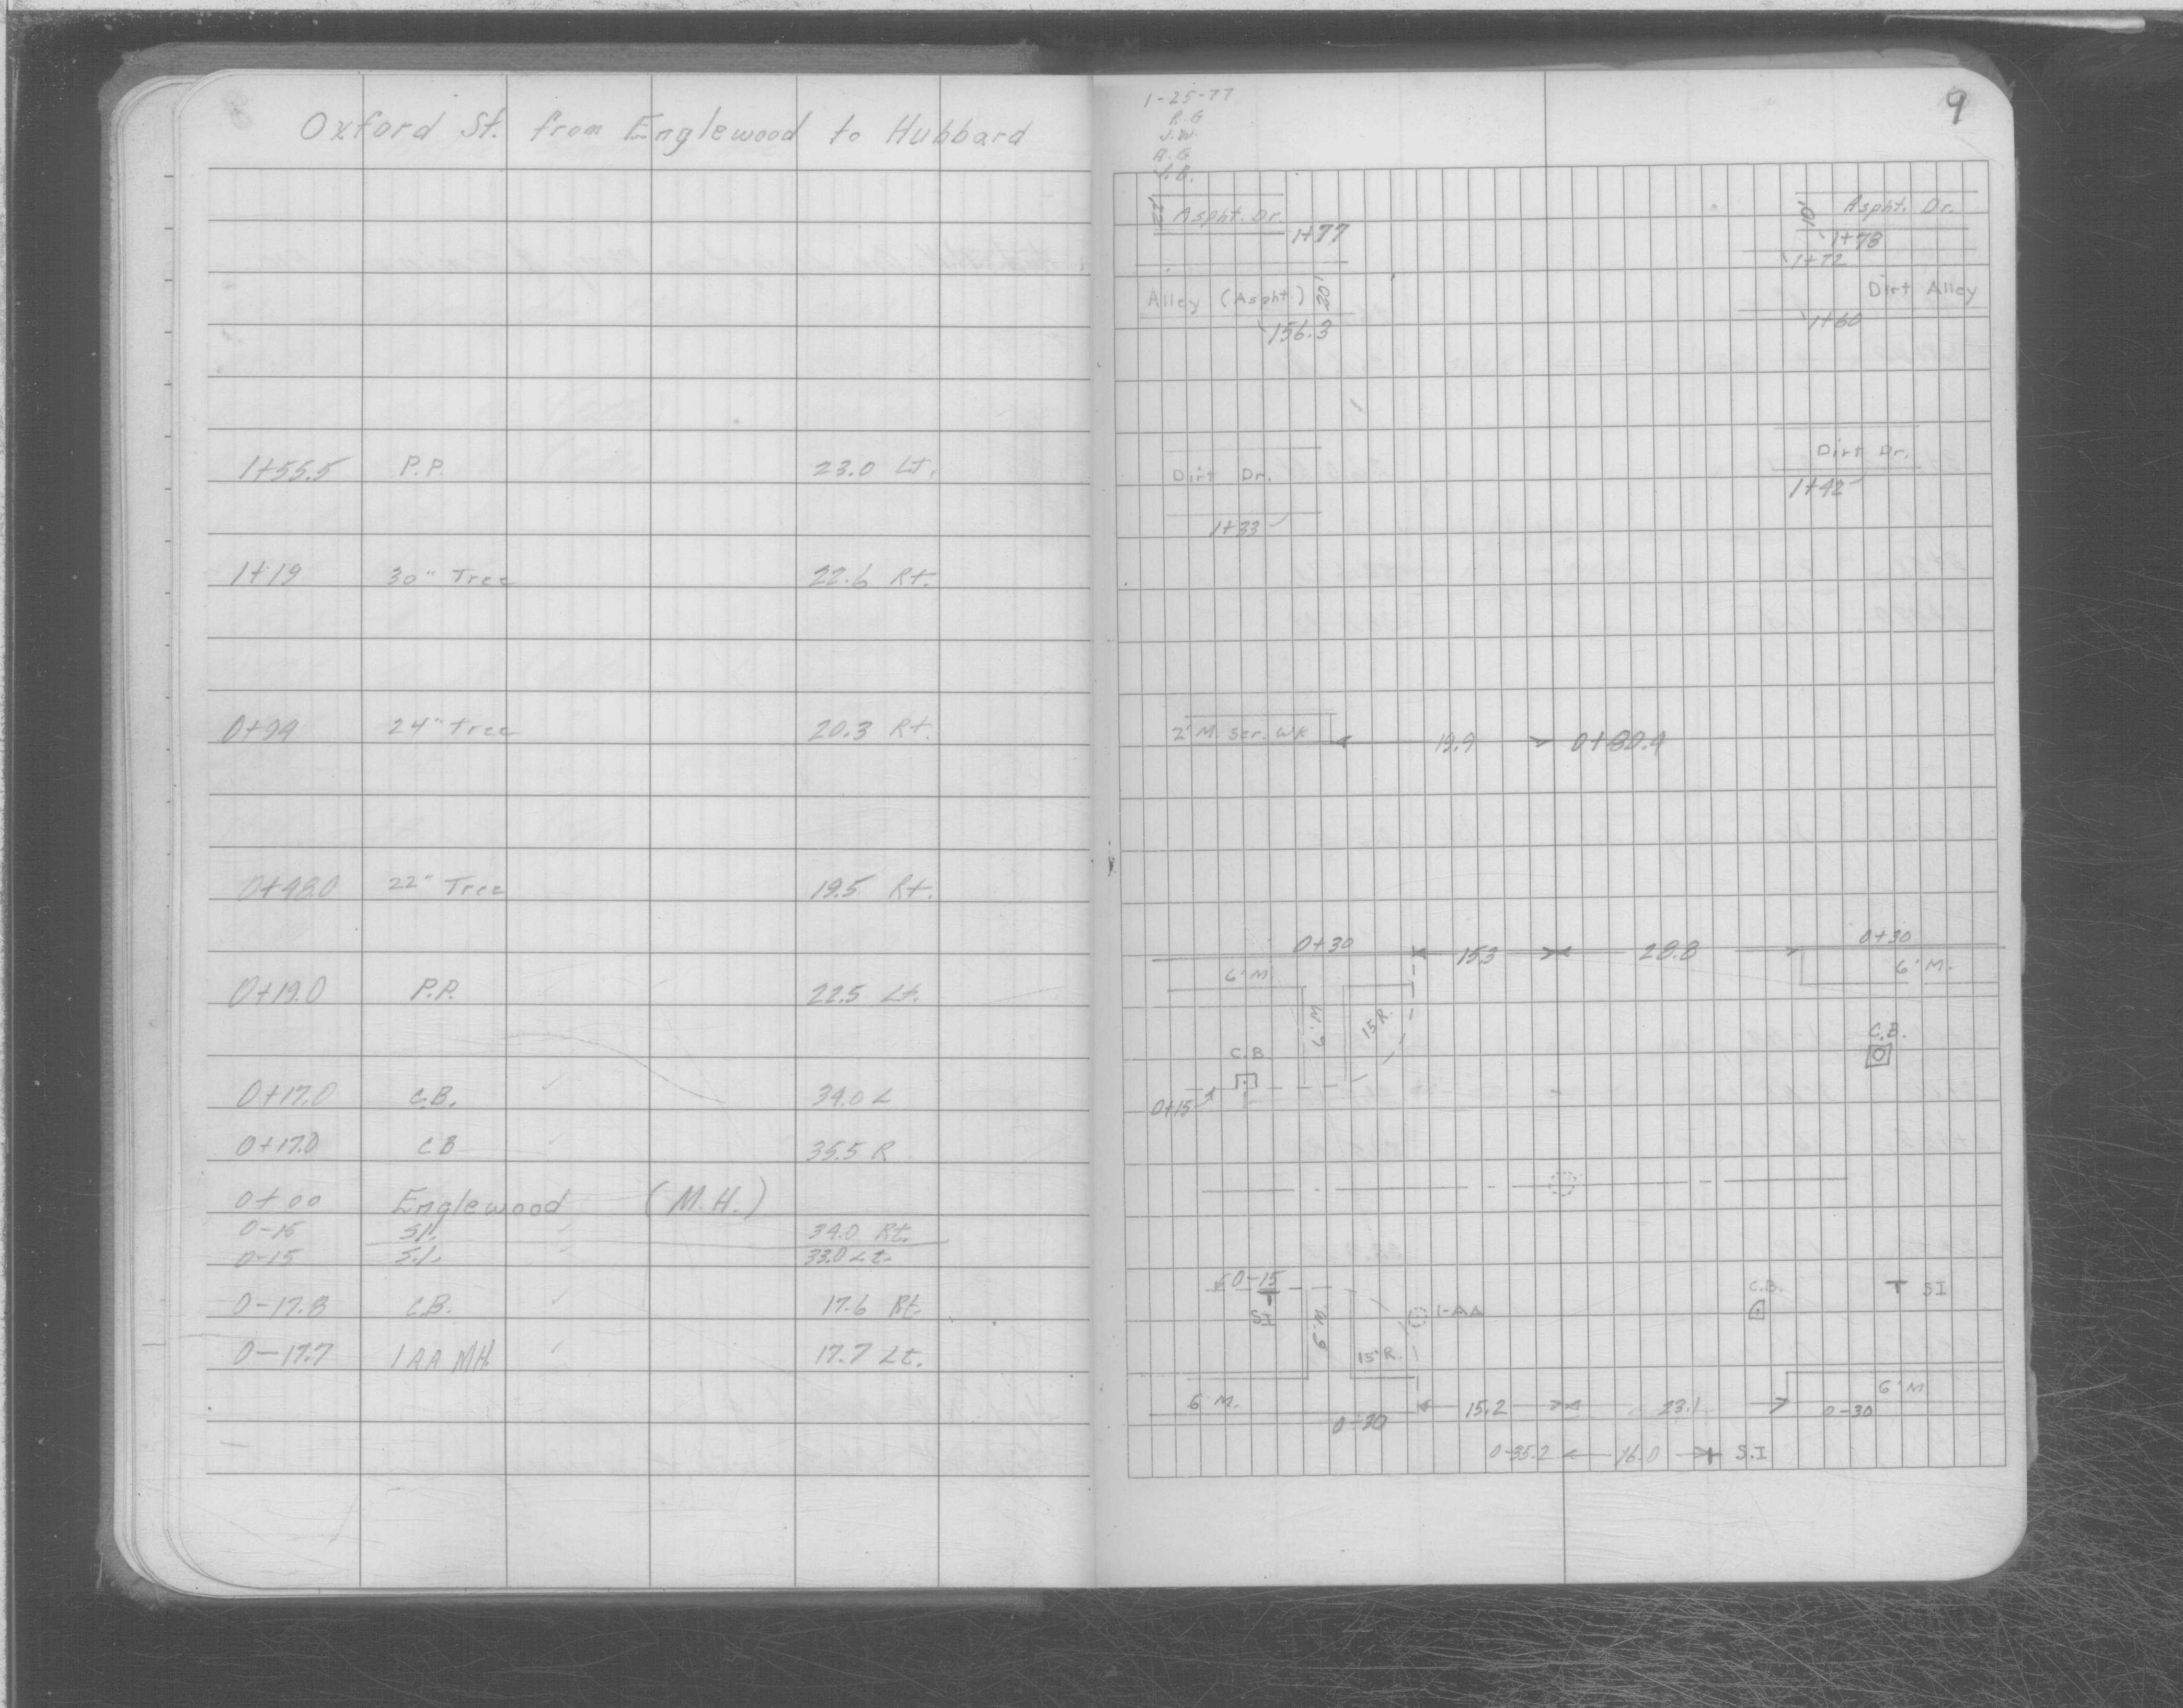 Oxford St. from Englewood to Hubbard
1+55.5 P.P. 23.0 Lt.
1+19 30" Tree 22.6 Rt.
0+94 24" Tree 20.3 Rt.
0+48.0 22" Tree 19.5 Rt.
0+19.0 P.P. 22.5 Lt.
0+17.0 C.B. 34.0 L
0+17.0 CB 35.5 R
0+00 Englewood (M.H.)
0-15 S.I. 34.0 Rt.
0-15 S.I. 33.0 Lt.
0-17.8 C.B. 17.6 Rt.
0-17.7 1AA MH. 17.7 Lt.
1-25-77
R.G
J.W.
A.G
J.B.
9
22' Aspht. Dr.
1+77
10' Aspht. Dr.
1+78
1+72
Alley (Aspht.) 20'
156.3
Dirt Alley
1+60
Dirt Dr.
1+33
Dirt Dr.
1+42
2' M. Ser. Wk 19.9 0+80.4
0+30 15.3 28.8 0+30
6' M. 6' M.
6' M. 15 R.
C.B. C.B.
0+15
0-15 C.B. SI
SI 6' M. 1-AA
15' R.
6 M. 15.2 23.1 6' M
0-30 0-30
0-35.2 16.0 S.I